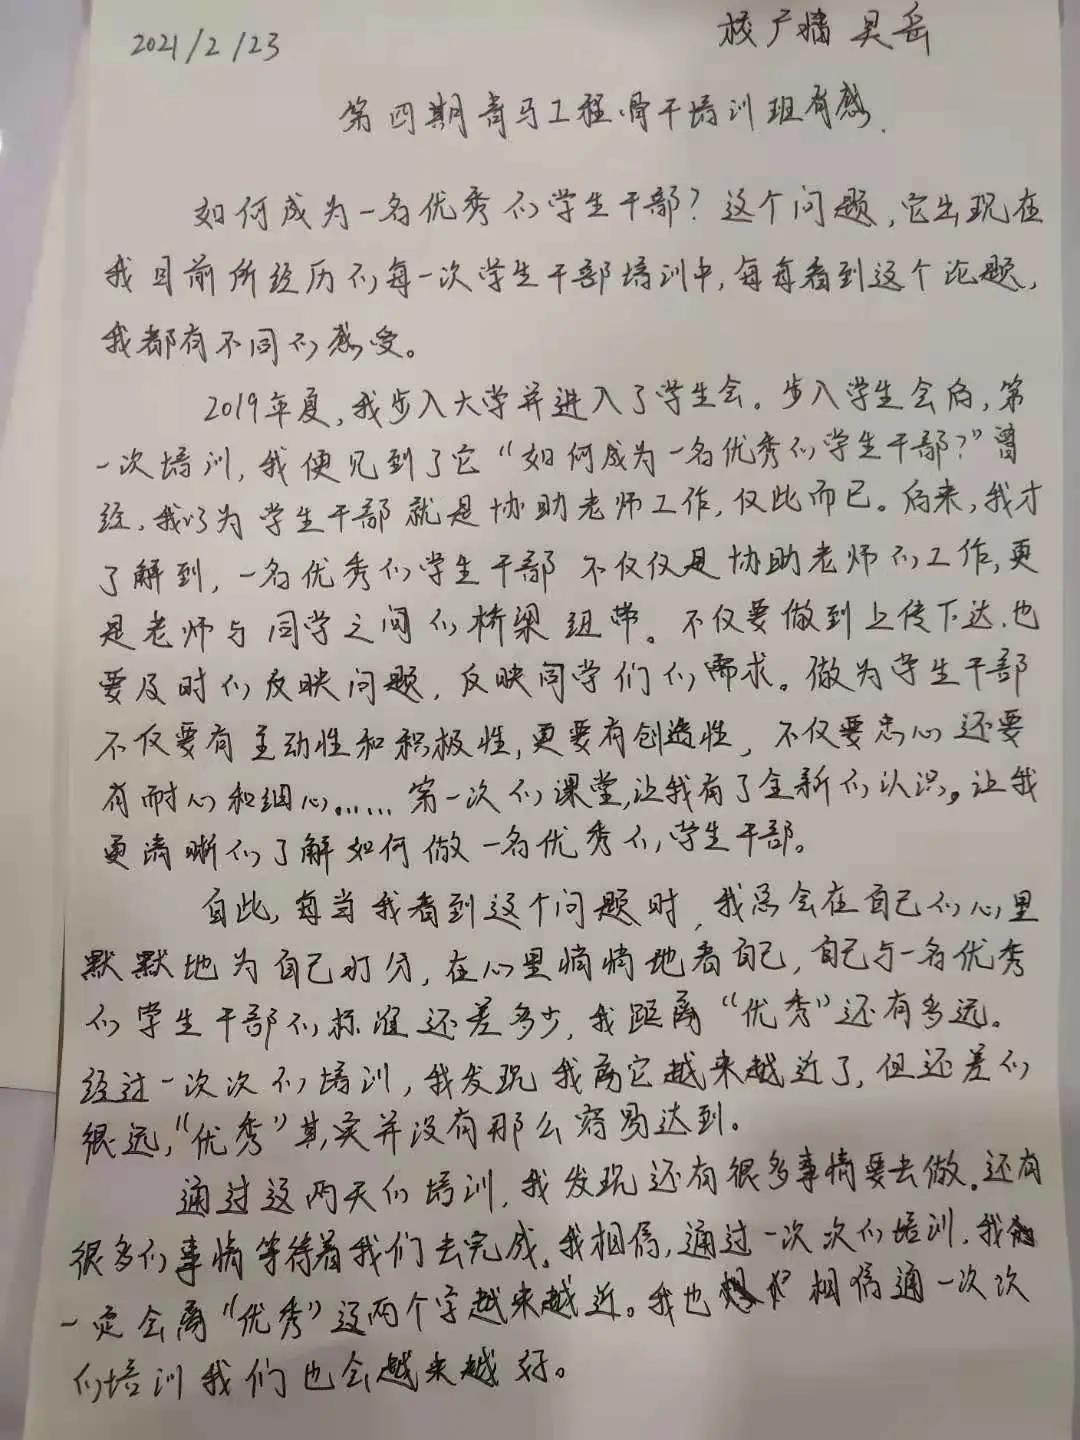 2021/2/23
校广播 吴岳
第四期青马工程骨干培训班有感.
如何成为一名优秀的学生干部？这个问题，它出现在
我目前所经历的每一次学生干部培训中，每每看到这个论题，
我都有不同的感受。
2019年夏，我步入大学并进入了学生会。步入学生会后，第
一次培训，我便见到了它“如何成为一名优秀的学生干部？”曾
经，我以为学生干部就是协助老师工作，仅此而已。后来，我才
了解到，一名优秀的学生干部不仅仅是协助老师的工作，更
是老师与同学之间的桥梁纽带。不仅要做到上传下达，也
要及时的反映问题，反映同学们的需求。做为学生干部
不仅要有主动性和积极性，更要有创造性，不仅要忠心还要
有耐心和细心......第一次的课堂，让我有了全新的认识。让我
更清晰的了解如何做一名优秀的学生干部。
自此，每当我看到这个问题时，我总会在自己的心里
默默地为自己打分，在心里悄悄地看自己，自己与一名优秀
的学生干部的标准还差多少，我距离“优秀”还有多远。
经过一次次的培训，我发现我离它越来越近了，但还差的
很远，“优秀”其实并没有那么容易达到。
通过这两天的培训，我发现还有很多事情要去做。还有
很多的事情等待着我们去完成。我相信，通过一次次的培训，我
一定会离“优秀”这两个字越来越近。我也相信通一次次
的培训我们也会越来越好。